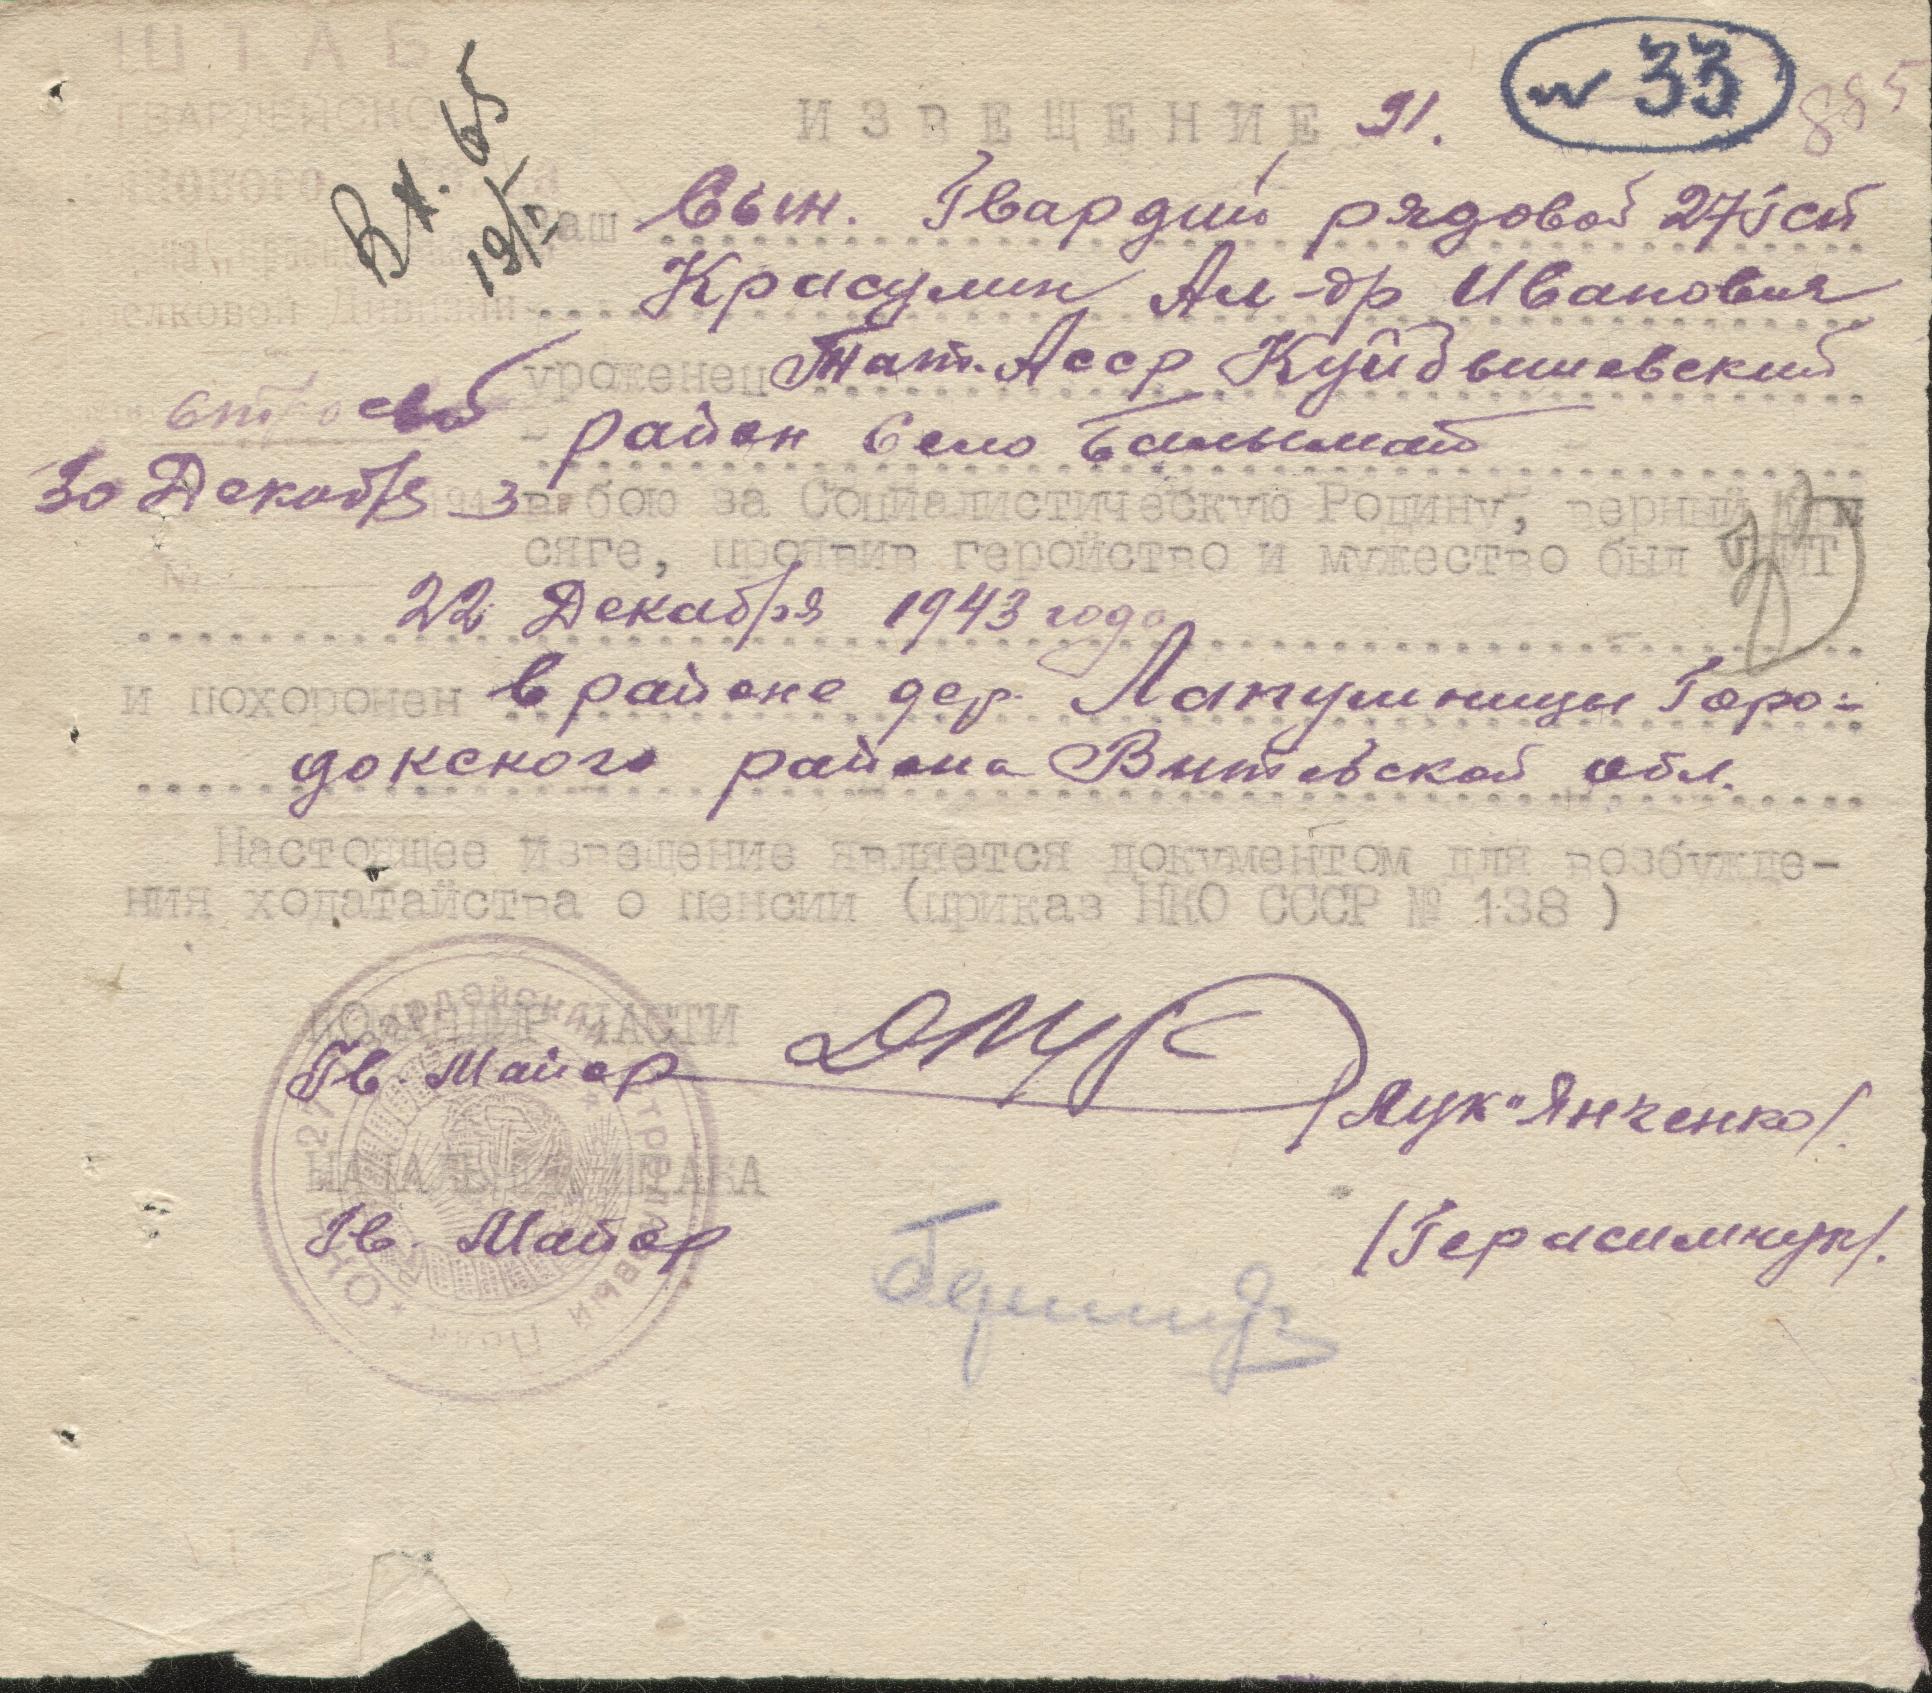 ШТАБ
ГВАРДЕЙСКОГО
Вх. 65
19/I
ИЗВЕЩЕНИЕ 91.
№ 33
885
Ваш сын. Гвардии рядовой 271 сп
Красулин Ал-др Иванович
стрелковой Дивизии
уроженец Тат. Асср Куйбышевский
район село Балымат
30 Декабря 1943 в бою за Социалистическую Родину, верный при
сяге, проявив геройство и мужество был убит
№
22 Декабря 1943 года
и похоронен в районе дер. Лапушницы Горо-
докского района Витебской обл.
Настоящее извещение является документом для возбужде-
ния ходатайства о пенсии (приказ НКО СССР № 138)
КОМАНДИР ЧАСТИ
Гв. Майор
/Лук"Янченко/.
НАЧАЛЬНИК ШТАБА
Гв. Майор
/Герасимчук/.
Гвардейский Стрелковый Полк * НКО * 271